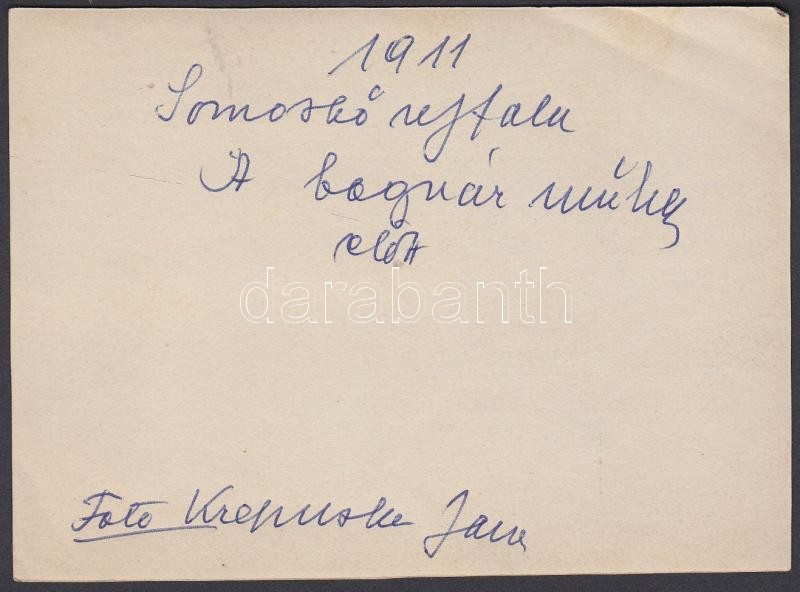 1911
Somoskő ujfalu
A bognár műhely
előtt
darabanth
Foto Krepuska Jan